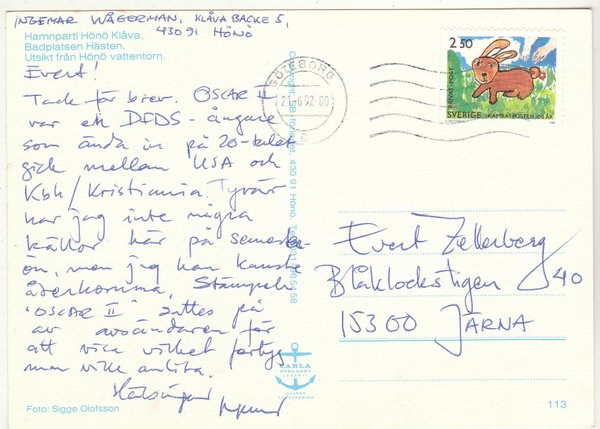 INGEMAR WÅGERMAN, KLÅVA BACKE 5,
430 91 HÖNÖ
Hamnparti Hönö Klåva,
Badplatsen Hästen,
Utsikt från Hönö vattentorn.
Evert!
Tack för brev. OSCAR II
var ett DFDS-ångare
som ända in på 20-talet
gick mellan USA och
Kbh/Kristiania. Tyvärr
har jag inte några
källor här på semester-
ön, men jag kan kanske
återkomma. Stämpeln
"OSCAR II" sattes på
av avsändaren för
att visa vilket fartyg
man ville anlita.
Hälsningar
Ingemar
Foto: Sigge Olofsson
GÖTEBORG
2 50
PRIVAT POST
SVERIGE
Evert Zellerberg
Blåklockstigen 40
153 00 JÄRNA
430 91 Hönö.
CARLA
FÖRLAGET
113